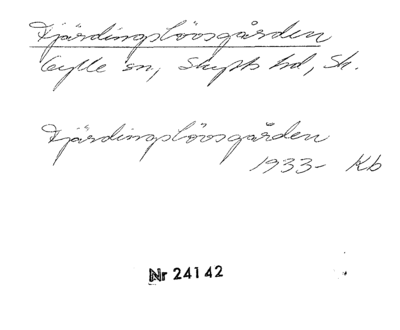 Fjärdingslöosgården
Gylle sn, Skytts hd, Sk.
Fjärdingslöosgården
1933- Kb
Nr 24142